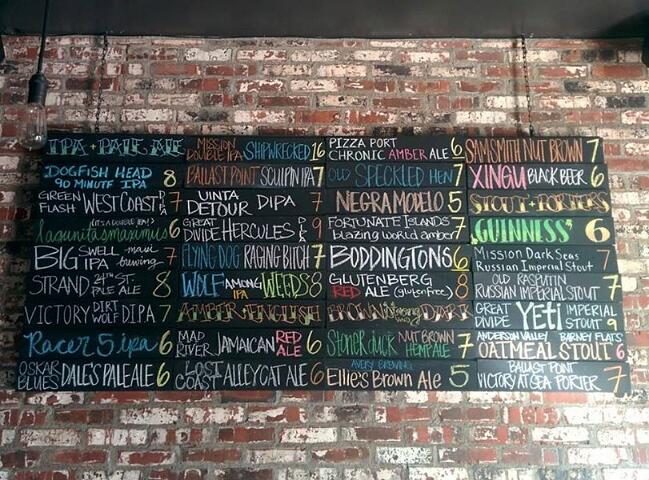 IPA + PALE ALE
DOGFISH HEAD
90 MINUTE IPA 8
GREEN FLASH WEST COAST IPA 7
(IT'S A DOUBLE IPA)
lagunitas maximus 6
BIG SWELL IPA maui brewing 7
STRAND 24TH ST PALE ALE 8
VICTORY DIRT WOLF DIPA 7
Racer 5 ipa 6
OSKAR BLUES DALE'S PALE ALE 6
MISSION
DOUBLE IPA SHIPWRECKED 16
BALLAST POINT SCULPIN IPA 7
UINTA
DETOUR DIPA 7
GREAT DIVIDE HERCULES 9
FLYING DOG RAGING BITCH 7
WOLF AMONG WEEDS IPA 8
MAD RIVER JAMAICAN RED ALE 6
LOST COAST ALLEY CAT ALE 6
PIZZA PORT
CHRONIC AMBER ALE 6
OLD SPECKLED HEN 7
NEGRA MODELO 5
FORTUNATE ISLANDS
blazing world amber 7
BODDINGTONS 6
GLUTENBERG
RED ALE (gluten free) 8
Stoner duck NUT BROWN HEMP ALE 7
AVERY BREWING
Ellie's Brown Ale 5
SAM SMITH NUT BROWN 7
XINGU BLACK BEER 6
STOUT + PORTERS
GUINNESS 6
Mission Dark Seas
Russian Imperial Stout 7
OLD RASPUTIN
RUSSIAN IMPERIAL STOUT 7
GREAT DIVIDE Yeti IMPERIAL STOUT 9
ANDERSON VALLEY BARNEY FLATS
OATMEAL STOUT 6
BALLAST POINT
VICTORY AT SEA PORTER 7